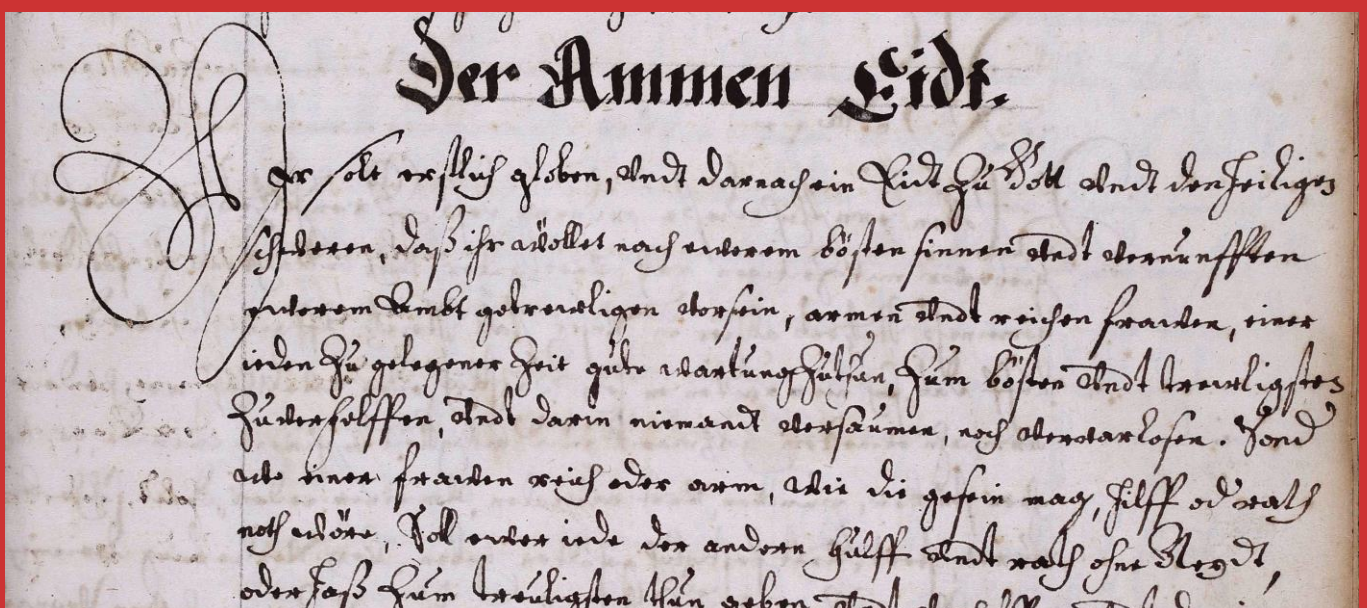 Der Ammen Eidt.
Ihr solt erstlich globen, vndt darnach ein Eidt zu Gott vndt den heiligen
schweren, daß ihr wöllet nach ewerem bösten sinnen vndt vernunfften
ewerem Ambt getrewligen vorsein, armen vndt reichen frawen, einer
ieden zu gelegener Zeit gute wartung zuthun, zum bösten vndt trewligsten
zuverhelffen, vndt darin niemandt versäumen, noch verwarlosen. Sond
wo einer frawen reich oder arm, wie die gesein mag, hilff od rath
noth wöre, Soll ewer iede der andern hülff vndt rath ohne Neydt,
oder haß zum treuligsten thun geben vndt